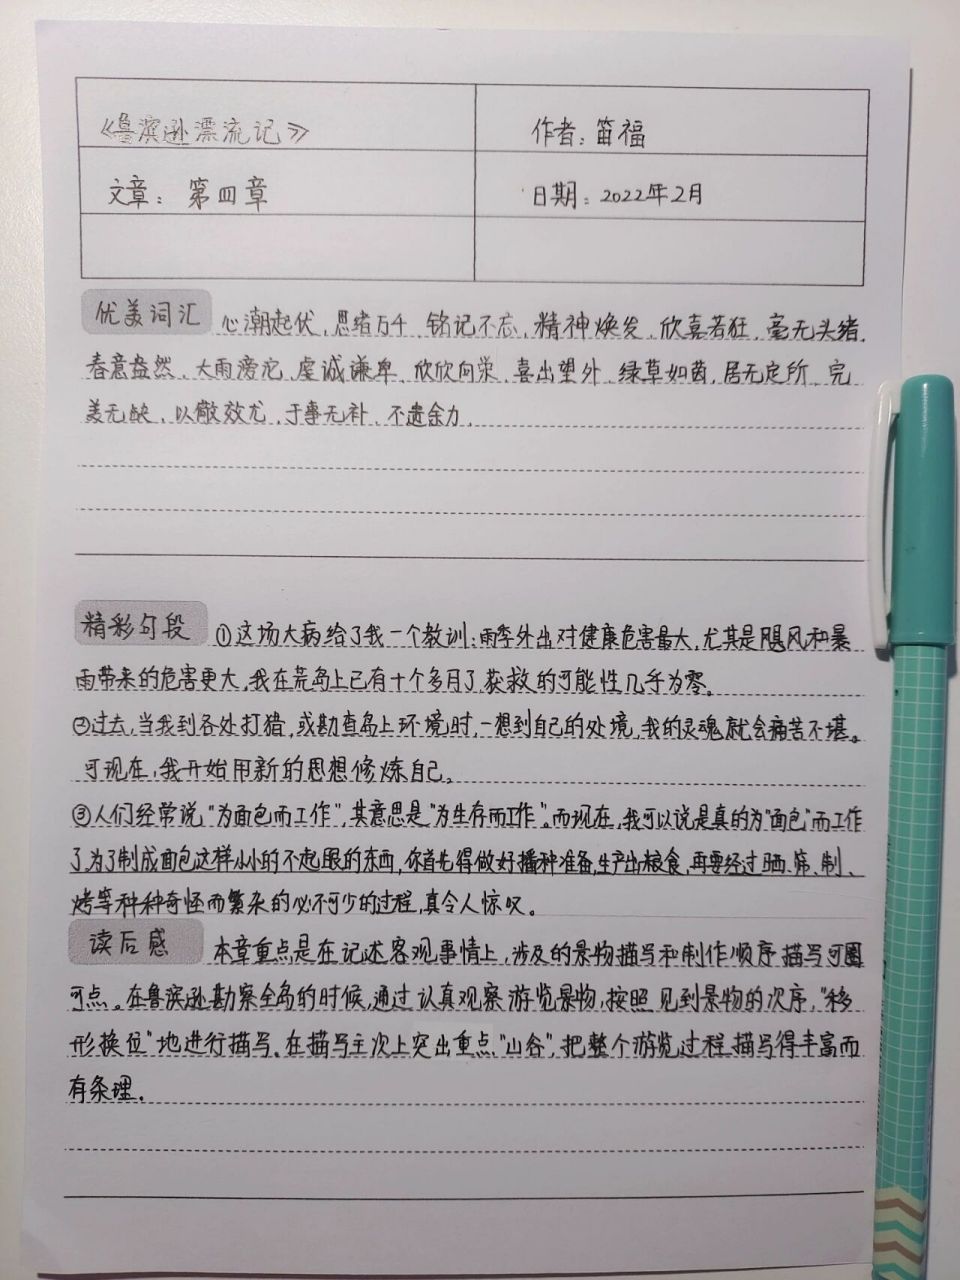 《鲁滨逊漂流记》
作者：笛福
文章：第四章
日期：2022年2月
优美词汇 心潮起伏、思绪万千、铭记不忘、精神焕发、欣喜若狂、毫无头绪、
春意盎然、大雨滂沱、虔诚谦卑、欣欣向荣、喜出望外、绿草如茵、居无定所、完
美无缺、以儆效尤、于事无补、不遗余力、
精彩句段 ①这场大病给了我一个教训：雨季外出对健康危害最大，尤其是飓风和暴
雨带来的危害更大，我在荒岛上已有十个多月了，获救的可能性几乎为零。
②过去，当我到各处打猎，或勘查岛上环境时，一想到自己的处境，我的灵魂就会痛苦不堪。
可现在，我开始用新的思想修炼自己。
③人们经常说“为面包而工作”，其意思是“为生存而工作”。而现在，我可以说是真的为“面包”而工作
了，为了制成面包这样小小的不起眼的东西，你首先得做好播种准备，生产出粮食，再要经过晒、筛、制、
烤等种种奇怪而繁杂的必不可少的过程，真令人惊叹。
读后感 本章重点是在记述客观事情上，涉及的景物描写和制作顺序描写可圈
可点。在鲁滨逊勘察全岛的时候，通过认真观察游览景物，按照见到景物的次序，“移
形换位”地进行描写。在描写主次上突出重点“山谷”，把整个游览过程描写得丰富而
有条理。